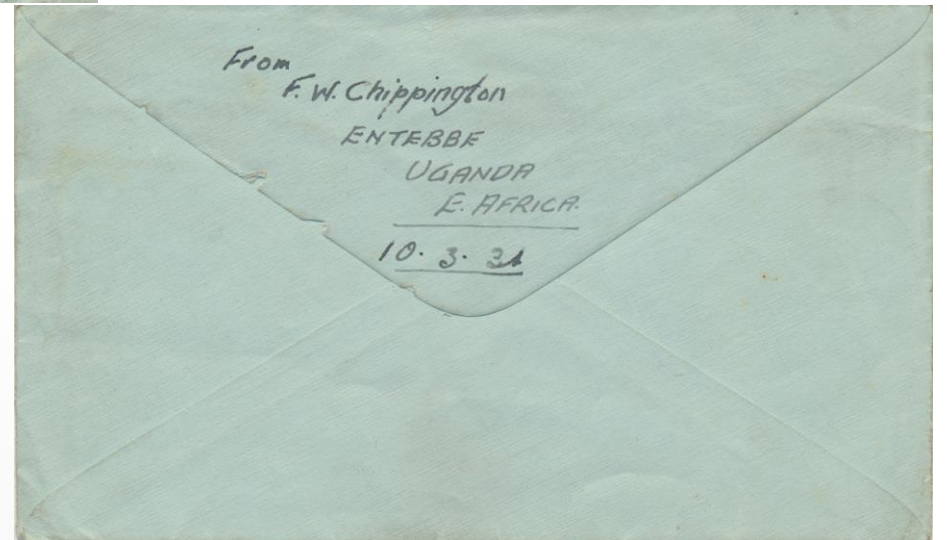 From
F. W. Chippington
ENTEBBE
UGANDA
E. AFRICA.
10. 3. 31